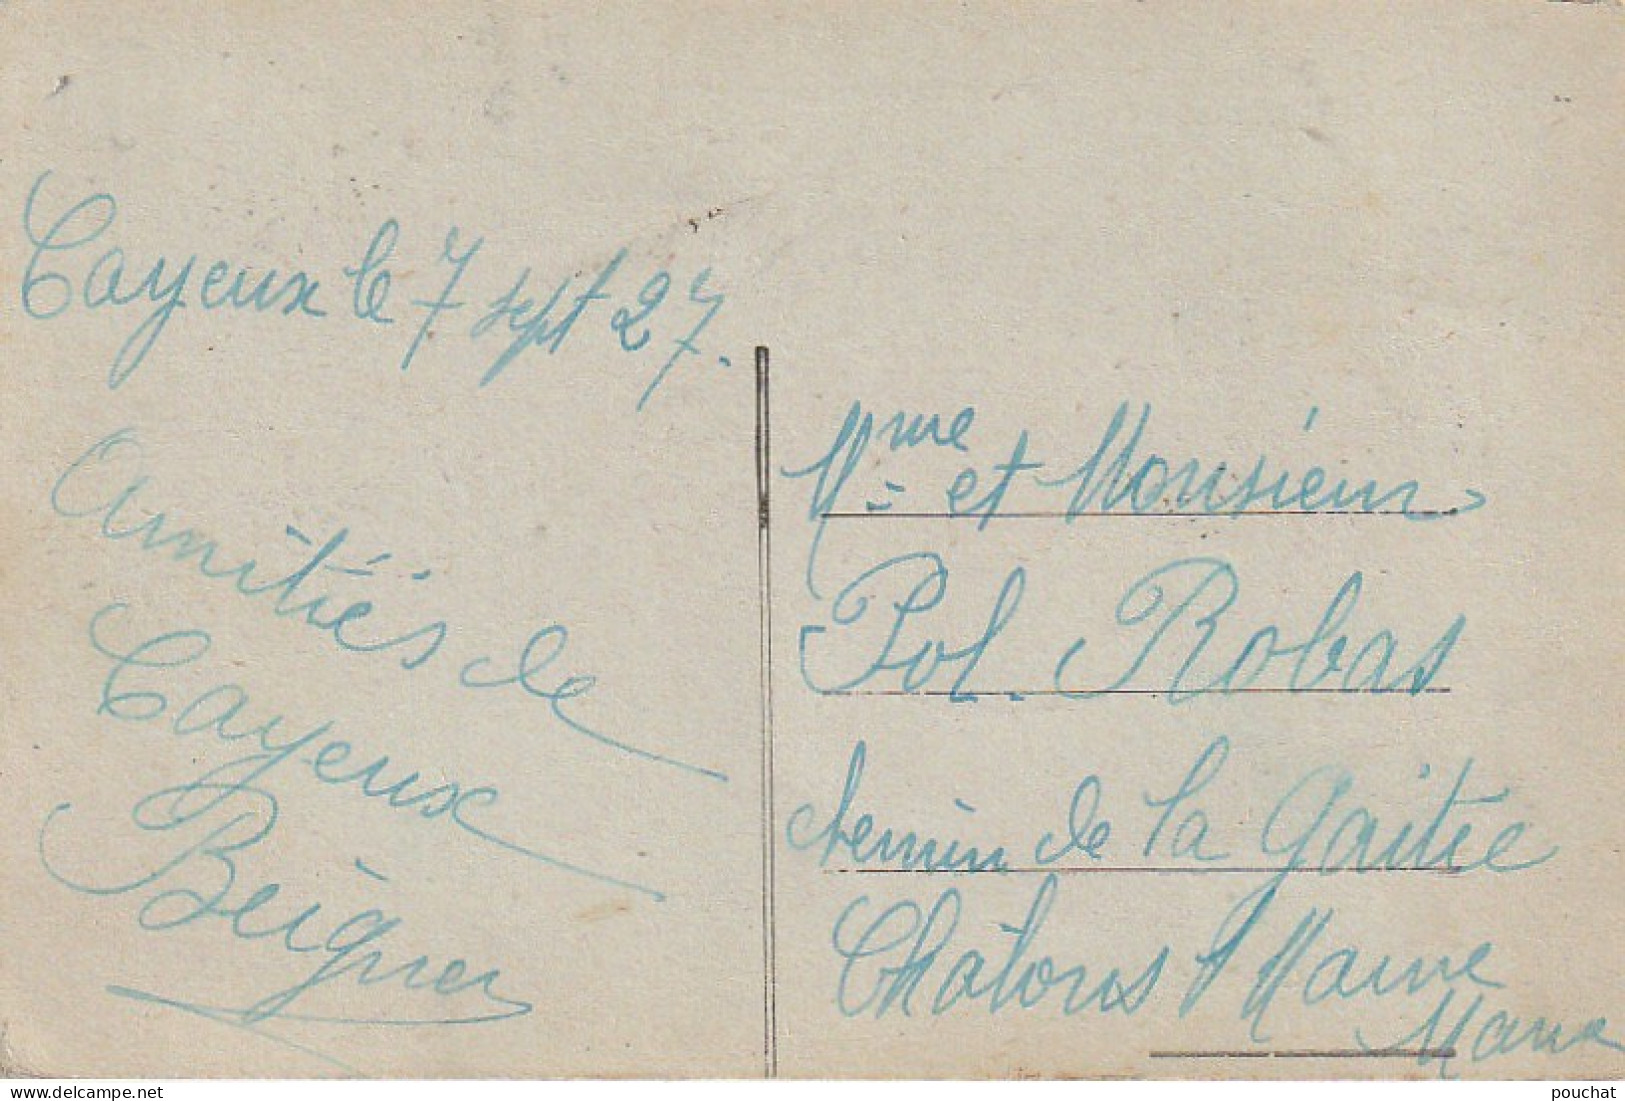 Cayeux le 7 sept 27.
Amitiés de
Cayeux
Beigner
Mme et Monsieur
Pol. Robas
chemin de la Gaitée
Chalons s/ Marne
Marne
pouchat